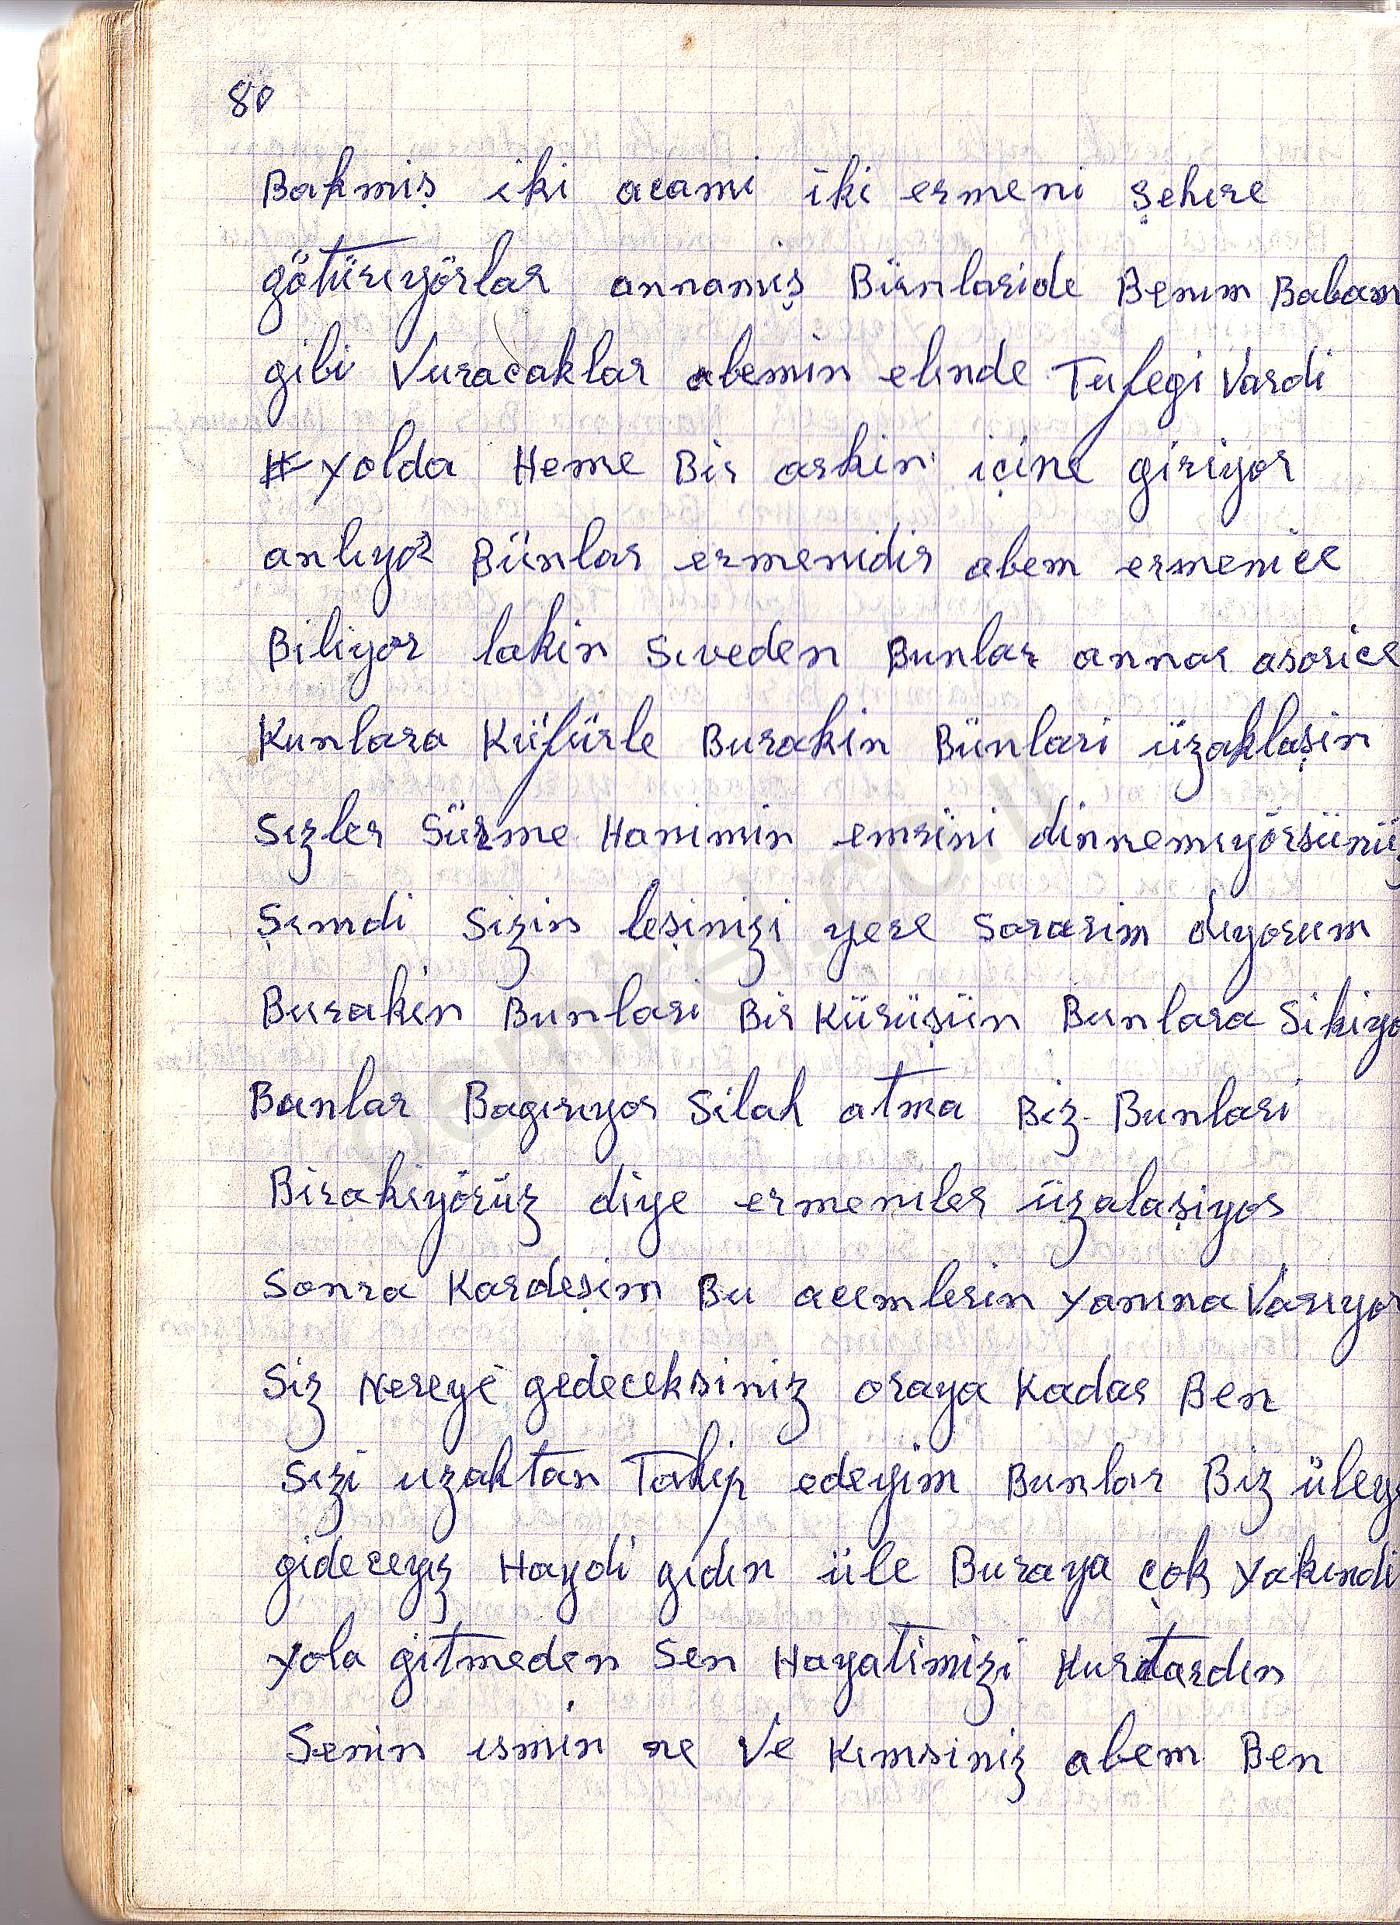 80
Bakmiş iki acami iki ermeni şehıre
götürıyörlar annamış Bünlaride Benım Babam
gibi Vuracaklar abemin elınde Tufegi Vardi
yolda Heme Bir arkin içine giriyor
anlıyor Bünlar ermenidir abem ermenice
Biliyor lakin sıveden Bunlar annar asorice
Kunlara Küfürle Burakin Bünlari üzaklaşin
Sızler Sürme Hanimin emrini dinnemıyörsünüz
Şımdi sizin leşinizi yere sararim dıyorum
Burakin Bunlari Bir Kürüşün Bunlara Sikiyo
Bunlar Bagırıyor Silah atma Biz Bunlari
Birakiyörüz diye ermenıler üzalaşiyor
Sonra Kardeşim Bu acemlerin yanına Varıyor
Siz Nereye gedeceksiniz oraya Kadar Ben
Sızi uzaktan Takip edeyim Bunlar Biz üley
gideceyız Haydi gıdın üle Buraya çok yakındi
yola gitmeden Sen Hayatimizi Kurtardın
Senin ısmin ne Ve Kımsiniz abem Ben
demirel.co.il